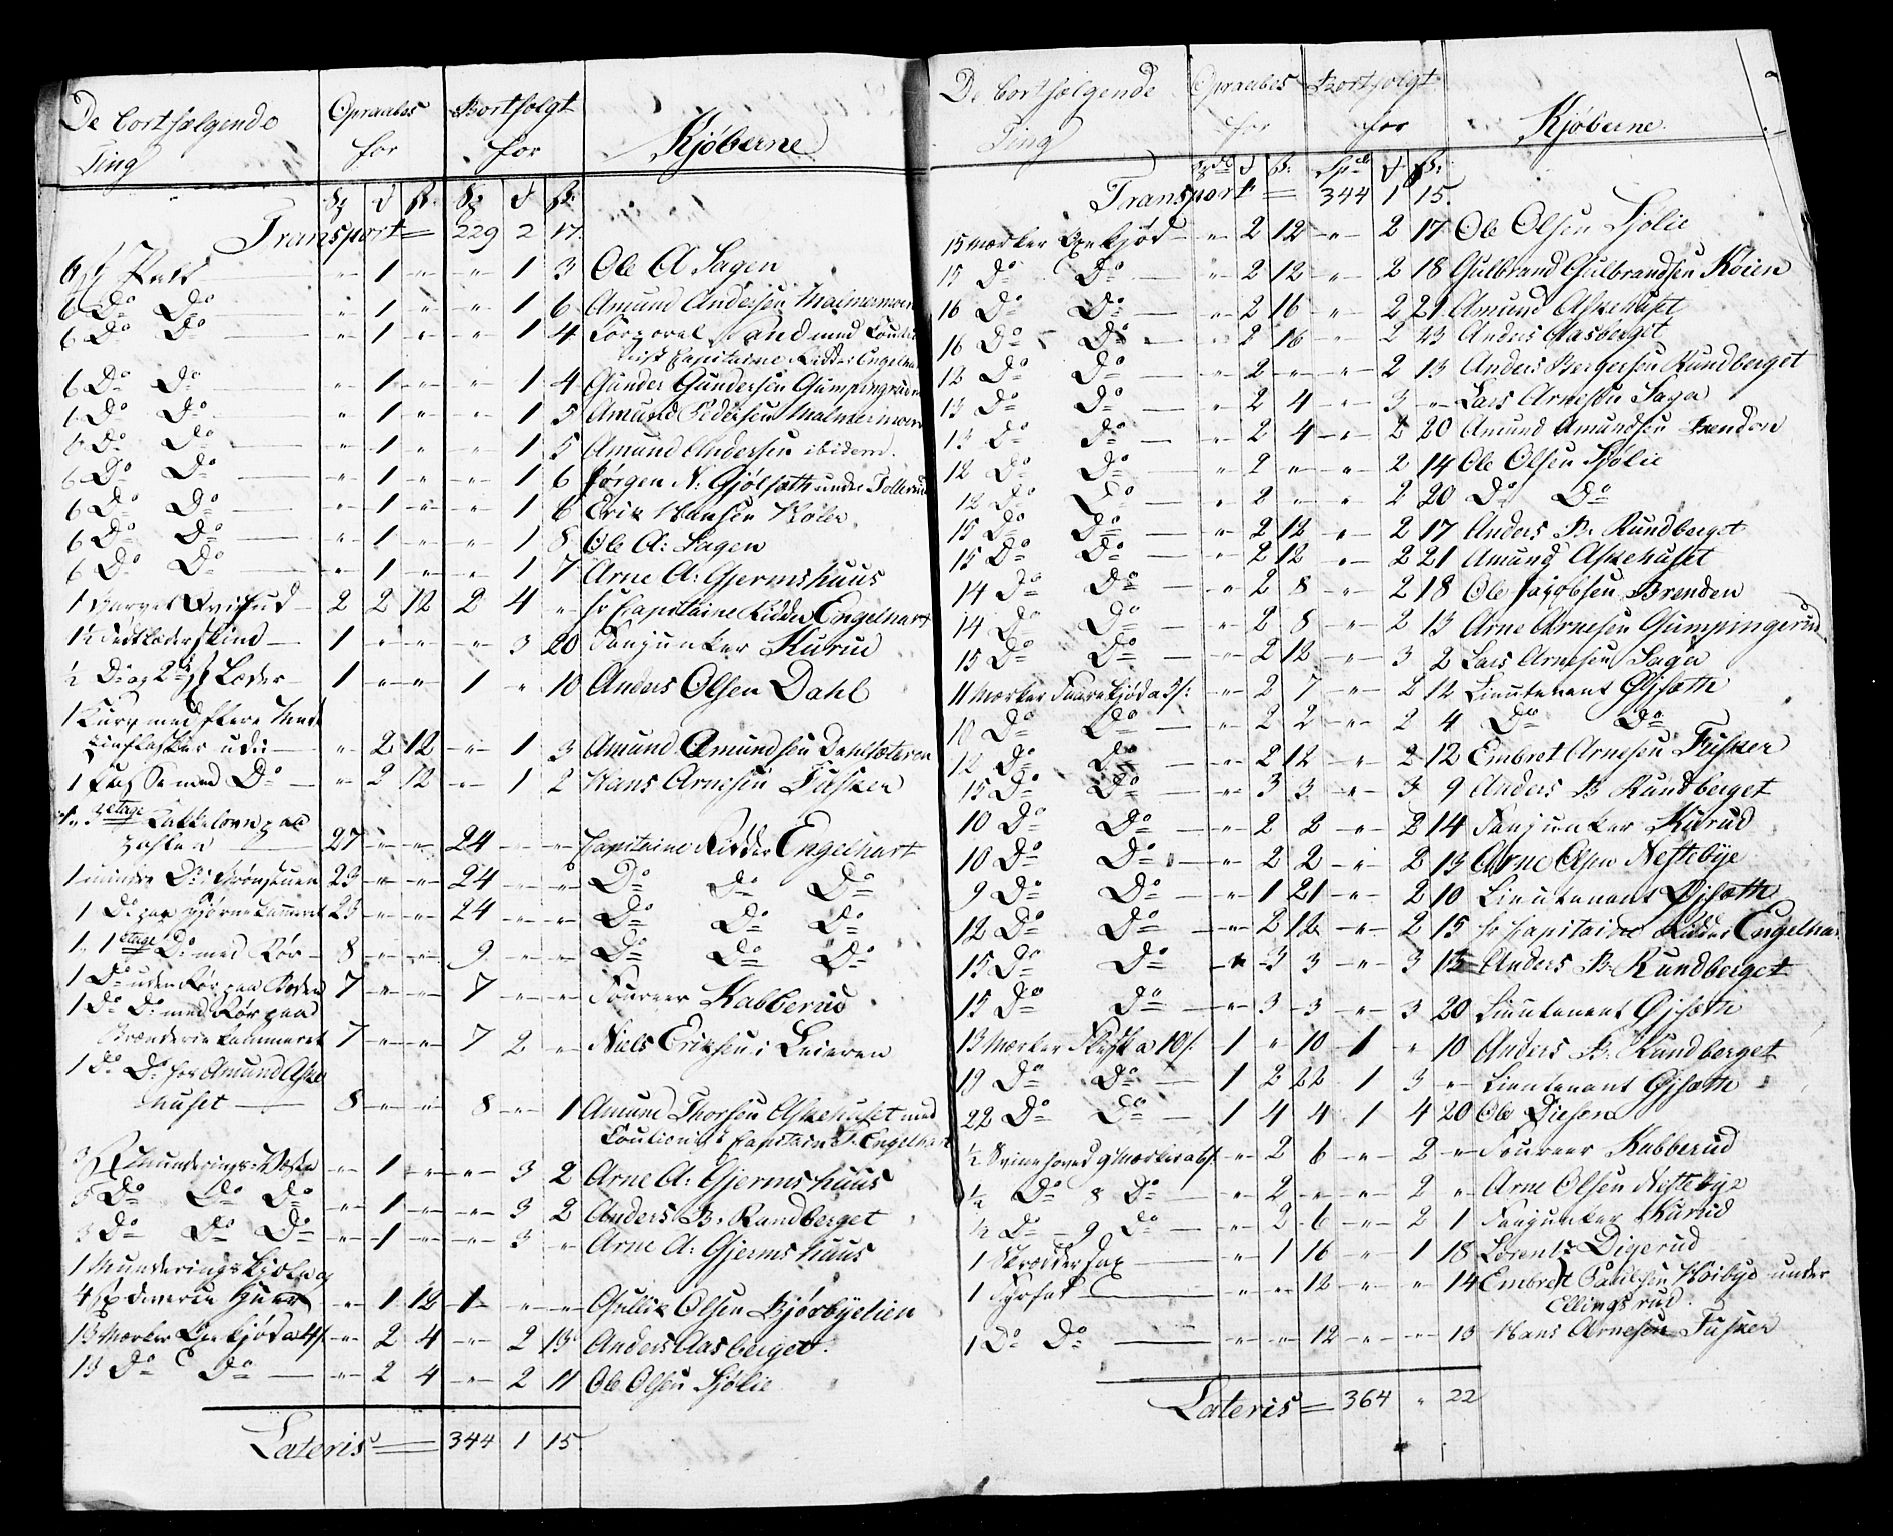 De bortsælgende Ting | Opraabes for | Bortsolgt for | Kjøberne
Sp d ß: | Sp d ß:
Transport = 229 2 17.
6 ℔ Pals " 1 " " 1 3 Ole A Sagen
6 Do Do " 1 " " 1 6 Amund Andersen Malmermoen
6 Do Do " 1 " " 1 4 Corporal Strand med Caution
Capitaine Ridder Engelhart
6 Do Do " 1 " " 1 4 Gunder Gundersen Gumpingrud
6 Do Do " 1 " " 1 5 Amund Pedersen Malmermoen
6 Do Do " 1 " " 1 5 Amund Andersen ibidem.
6 Do Do " 1 " " 1 6 Jørgen N: Gjølsæth under Tollerud
6 Do Do " 1 " " 1 6 Erik Hansen Holer
6 Do Do " 1 " " 1 8 Ole A: Sagen
6 Do Do " 1 " " 1 7 Arne A: Gjermshuus
1 2 2 12 2 4 " Hr Capitaine Ridder Engelhart
1½ 1 " " " 3 20 Fanjunker Kurud
½ Do og 2 ℔ Læder 1 " " 1 " 10 Anders Olsen Dahl
1 Kurv med flere
udi " 2 12 " 1 3 Amund Amundsen Dahlsæteren
1 med Do " 2 12 " 1 2 Hans Arnesen Fusker
1 3 etage Kakkelovn paa
27 " " 24 " " Capitaine Ridder Engelhart
1 mindre Do i 23 " " 24 " " Do Do Do
1 Do paa Hjørnekammeret 23 " " 24 " " Do Do Do
1 1 etage Do med Rør 8 " " 9 " " Do Do Do
1 Do uden Rør paa Boden 7 " " 7 " " Foureer Kabberud
1 Do Do med Rør paa
kammeret 7 " " 7 2 " Niels Eriksen i Leieren
1 Do Do hos Amund Aske
huset 8 " " 8 " 1 Amund Thorsen Askehuset med
Caution af Capitain R. Engelhart
3 Munderings Væste " 1 " " 3 2 Arne A: Gjermshuus
5 Do Do Do " 1 " " 3 2 Anders B: Rundberget
3 Do Do Do " 1 " " 3 " Arne A: Gjermshuus
1 Munderings Kjole og
4 " 1 12 1 " " Gullik Olsen Bjørbyelien
13 Mærker Oxekjød a 4ß " 2 4 " 2 13 Anders Aasberget.
13 Do Do " 2 4 " 2 11 Ole Olsen Sjølie
Lateris = 344 1 15.

De bortsælgende Ting | Opraabes for | Bortsolgt for | Kjøberne.
Spd d ß: | Spd d ß:
Transport = 344 1 15.
15 Mærker Oxekjød " 2 12 " 2 17 Ole Olsen Sjølie
15 Do Do " 2 12 " 2 18 Gulbrand Gulbrandsen Koien
16 Do Do " 2 16 " 2 21 Amund Askehuset
16 Do Do " 2 16 " 2 23 Anders Aasberget
12 Do Do " 2 " " 2 13 Anders Bergersen Rundberget
13 Do Do " 2 4 " 3 " Lars Arnesen Saga
13 Do Do " 2 4 " 2 20 Amund Amundsen Brenden
12 Do Do " 2 " " 2 14 Ole Olsen Sjølie
12 Do Do " 2 " " 2 20 Do Do
15 Do Do " 2 12 " 2 17 Anders B: Rundberget
15 Do Do " 2 12 " 2 21 Amund Askehuset
14 Do Do " 2 8 " 2 18 Ole Jacobsen Brenden
14 Do Do " 2 8 " 2 13 Arne Arnesen Gumpingerud
15 Do Do " 2 12 " 3 2 Lars Arnesen Saga
11 Mærker Faarekjød a 5ß: " 2 7 " 2 12 Lieutenant Øjsæth
10 Do Do " 2 2 " 2 4 Do Do
12 Do Do " 2 12 " 2 12 Embret Arnesen Fusker
15 Do Do " 3 3 " 3 9 Anders B Rundberget
10 Do Do " 2 2 " 2 14 Fanjunker Kurud
10 Do Do " 2 2 " 2 13 Arne Olsen Nestebye
9 Do Do " 1 21 " 2 10 Lieutenant Øjsæth
12 Do Do " 2 12 " 2 15 Hr Capitaine Ridder Engelhart
15 Do Do " 3 3 " 3 15 Anders B: Rundberget
15 Do Do " 3 3 " 3 20 Lieutenant Øjsæth
13 Mærker Flesk a 10ß: 1 " 10 1 " 10 Anders B: Rundberget
19 Do Do 1 2 22 1 3 " Lieutenant Øjsæth
22 Do Do 1 4 4 1 4 20 Ole Diesen
½ Svinehoved 9 Mærker a 6ß: " 2 6 " 2 " Foureer Kabberud
½ Do 8 Do " 2 " " 2 " Arne Olsen Nestebye
½ Do 9 Do " 2 6 " 2 1 Fanjunker Kurud
1 Skræddersax " 1 16 " 1 18 Lorents Digerud
1 Fyrfat " " 12 " " 14 Embret Paulsen Høibye under
Ellingsrud.
1 Do Do " " 12 " " 13 Hans Arnesen Fusker
Lateris = 364 " 22